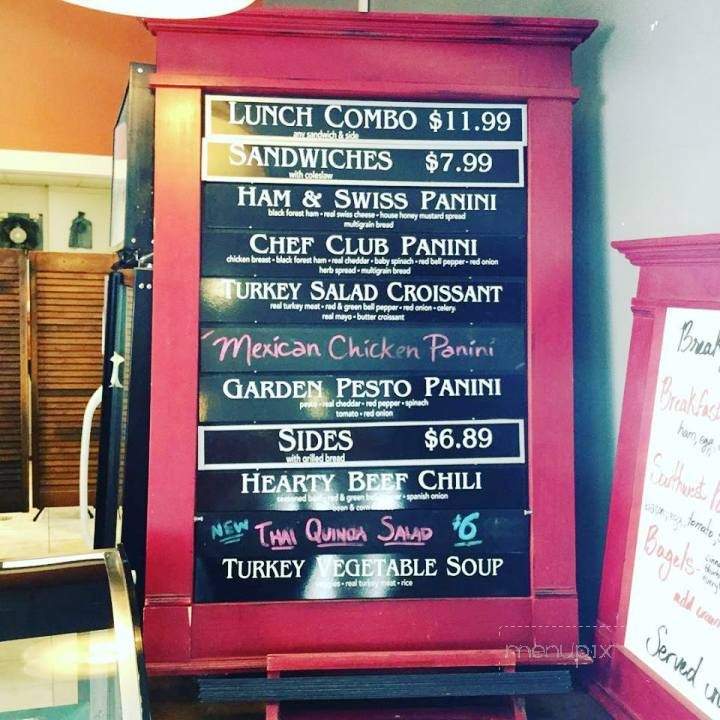 LUNCH COMBO $11.99
any sandwich & side
SANDWICHES $7.99
with coleslaw
HAM & SWISS PANINI
black forest ham • real swiss cheese • house honey mustard spread
multigrain bread
CHEF CLUB PANINI
chicken breast • black forest ham • real cheddar • baby spinach • red bell pepper • red onion
herb spread • multigrain bread
TURKEY SALAD CROISSANT
real turkey meat • red & green bell pepper • red onion • celery
real mayo • butter croissant
Mexican Chicken Panini
GARDEN PESTO PANINI
pesto • real cheddar • red pepper • spinach
tomato • red onion
SIDES $6.89
with grilled bread
HEARTY BEEF CHILI
seasoned beef • red & green bell pepper • spanish onion
bean & corn
NEW THAI QUINOA SALAD $6
TURKEY VEGETABLE SOUP
• real turkey meat • rice
Breakfas
ham, egg,
Southwest
Bagels
add
Served
menupix